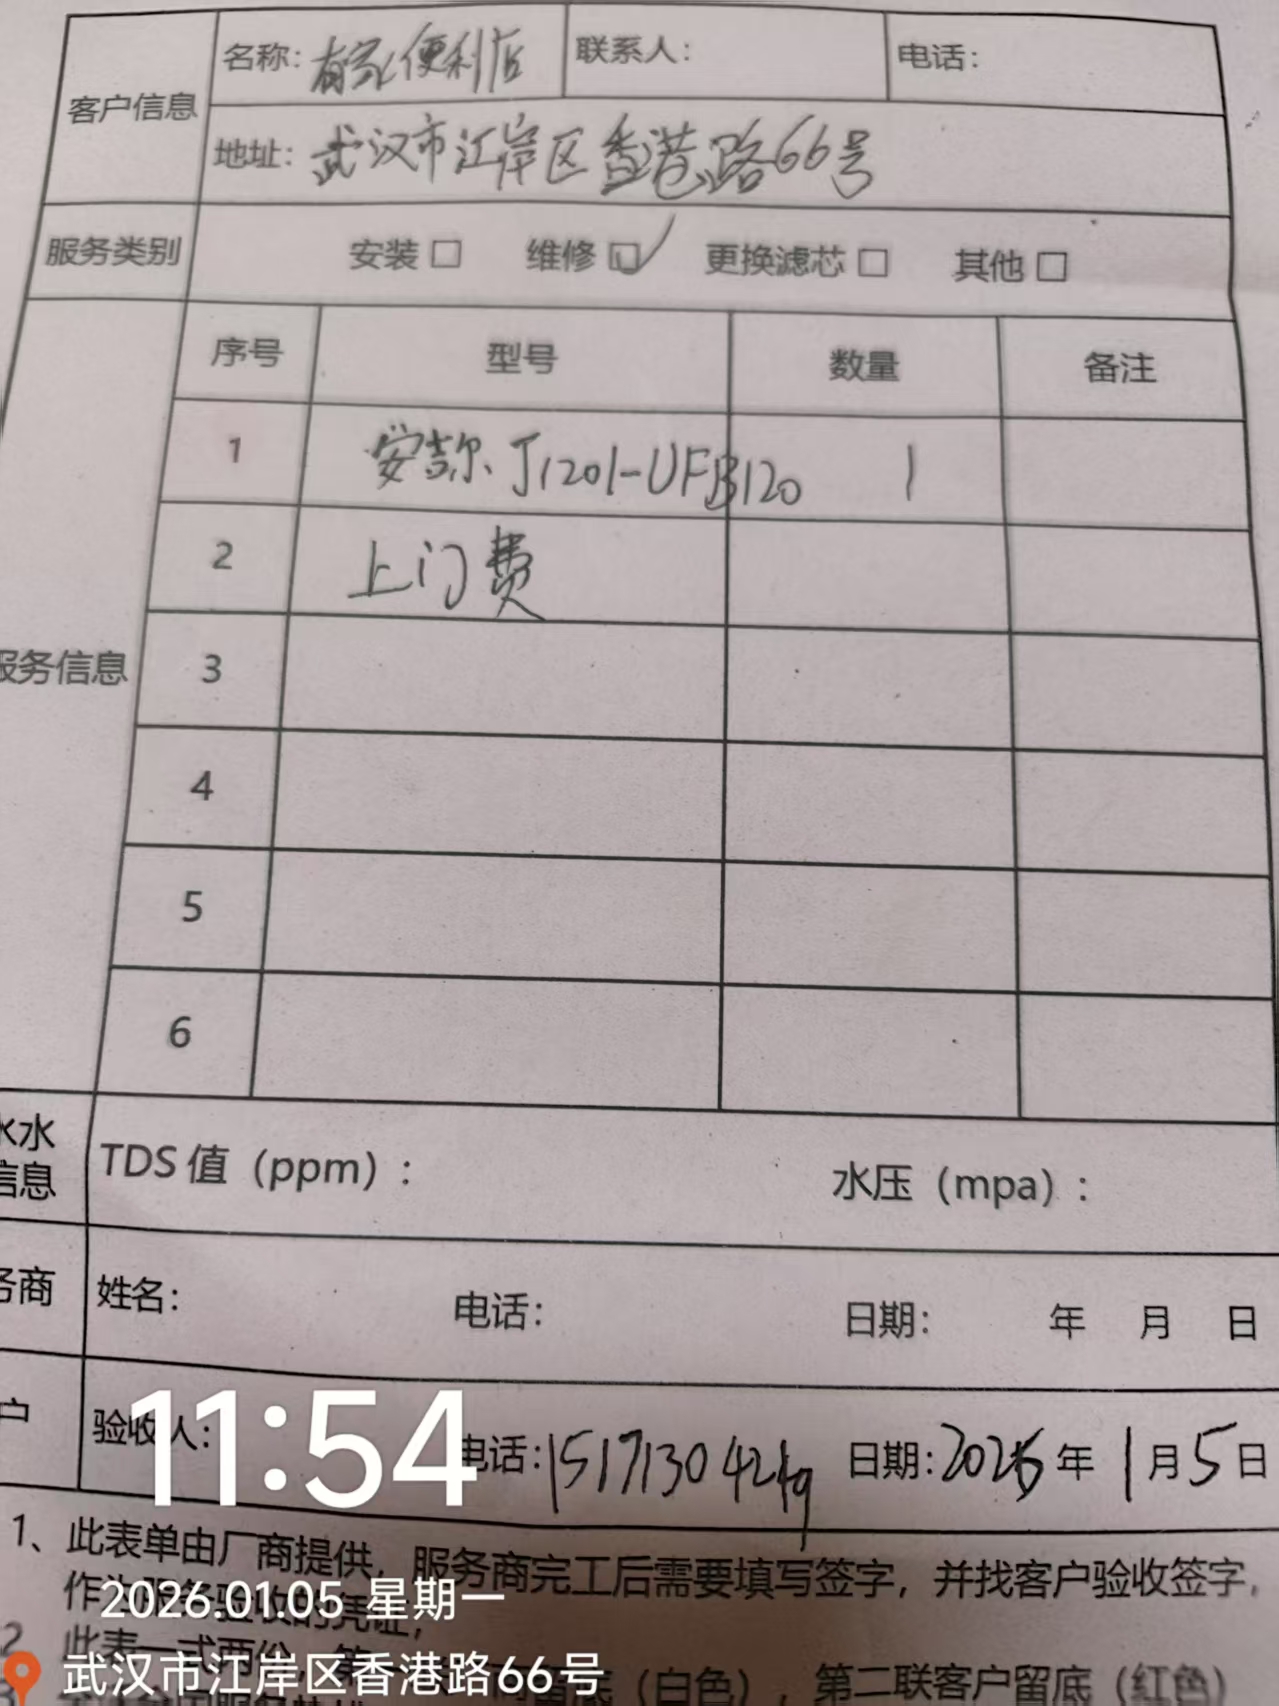 客户信息 名称：有家便利店 联系人： 电话：
地址：武汉市江岸区香港路66号
服务类别 安装□ 维修☑ 更换滤芯□ 其他□
服务信息 序号 型号 数量 备注
1 安吉尔 J1201-UFB120 1
2 上门费
3
4
5
6
水水
信息
TDS 值（ppm）: 水压（mpa）:
务商 姓名： 电话： 日期： 年 月 日
户 验收人： 电话：1517130 日期：2026年1月5日
11:54
1、此表单由厂商提供，服务商完工后需要填写签字，并找客户验收签字，
作为服务验收的凭证；
2026.01.05 星期一
2 此表一式两份，第 底（白色），第二联客户留底（红色）
武汉市江岸区香港路66号